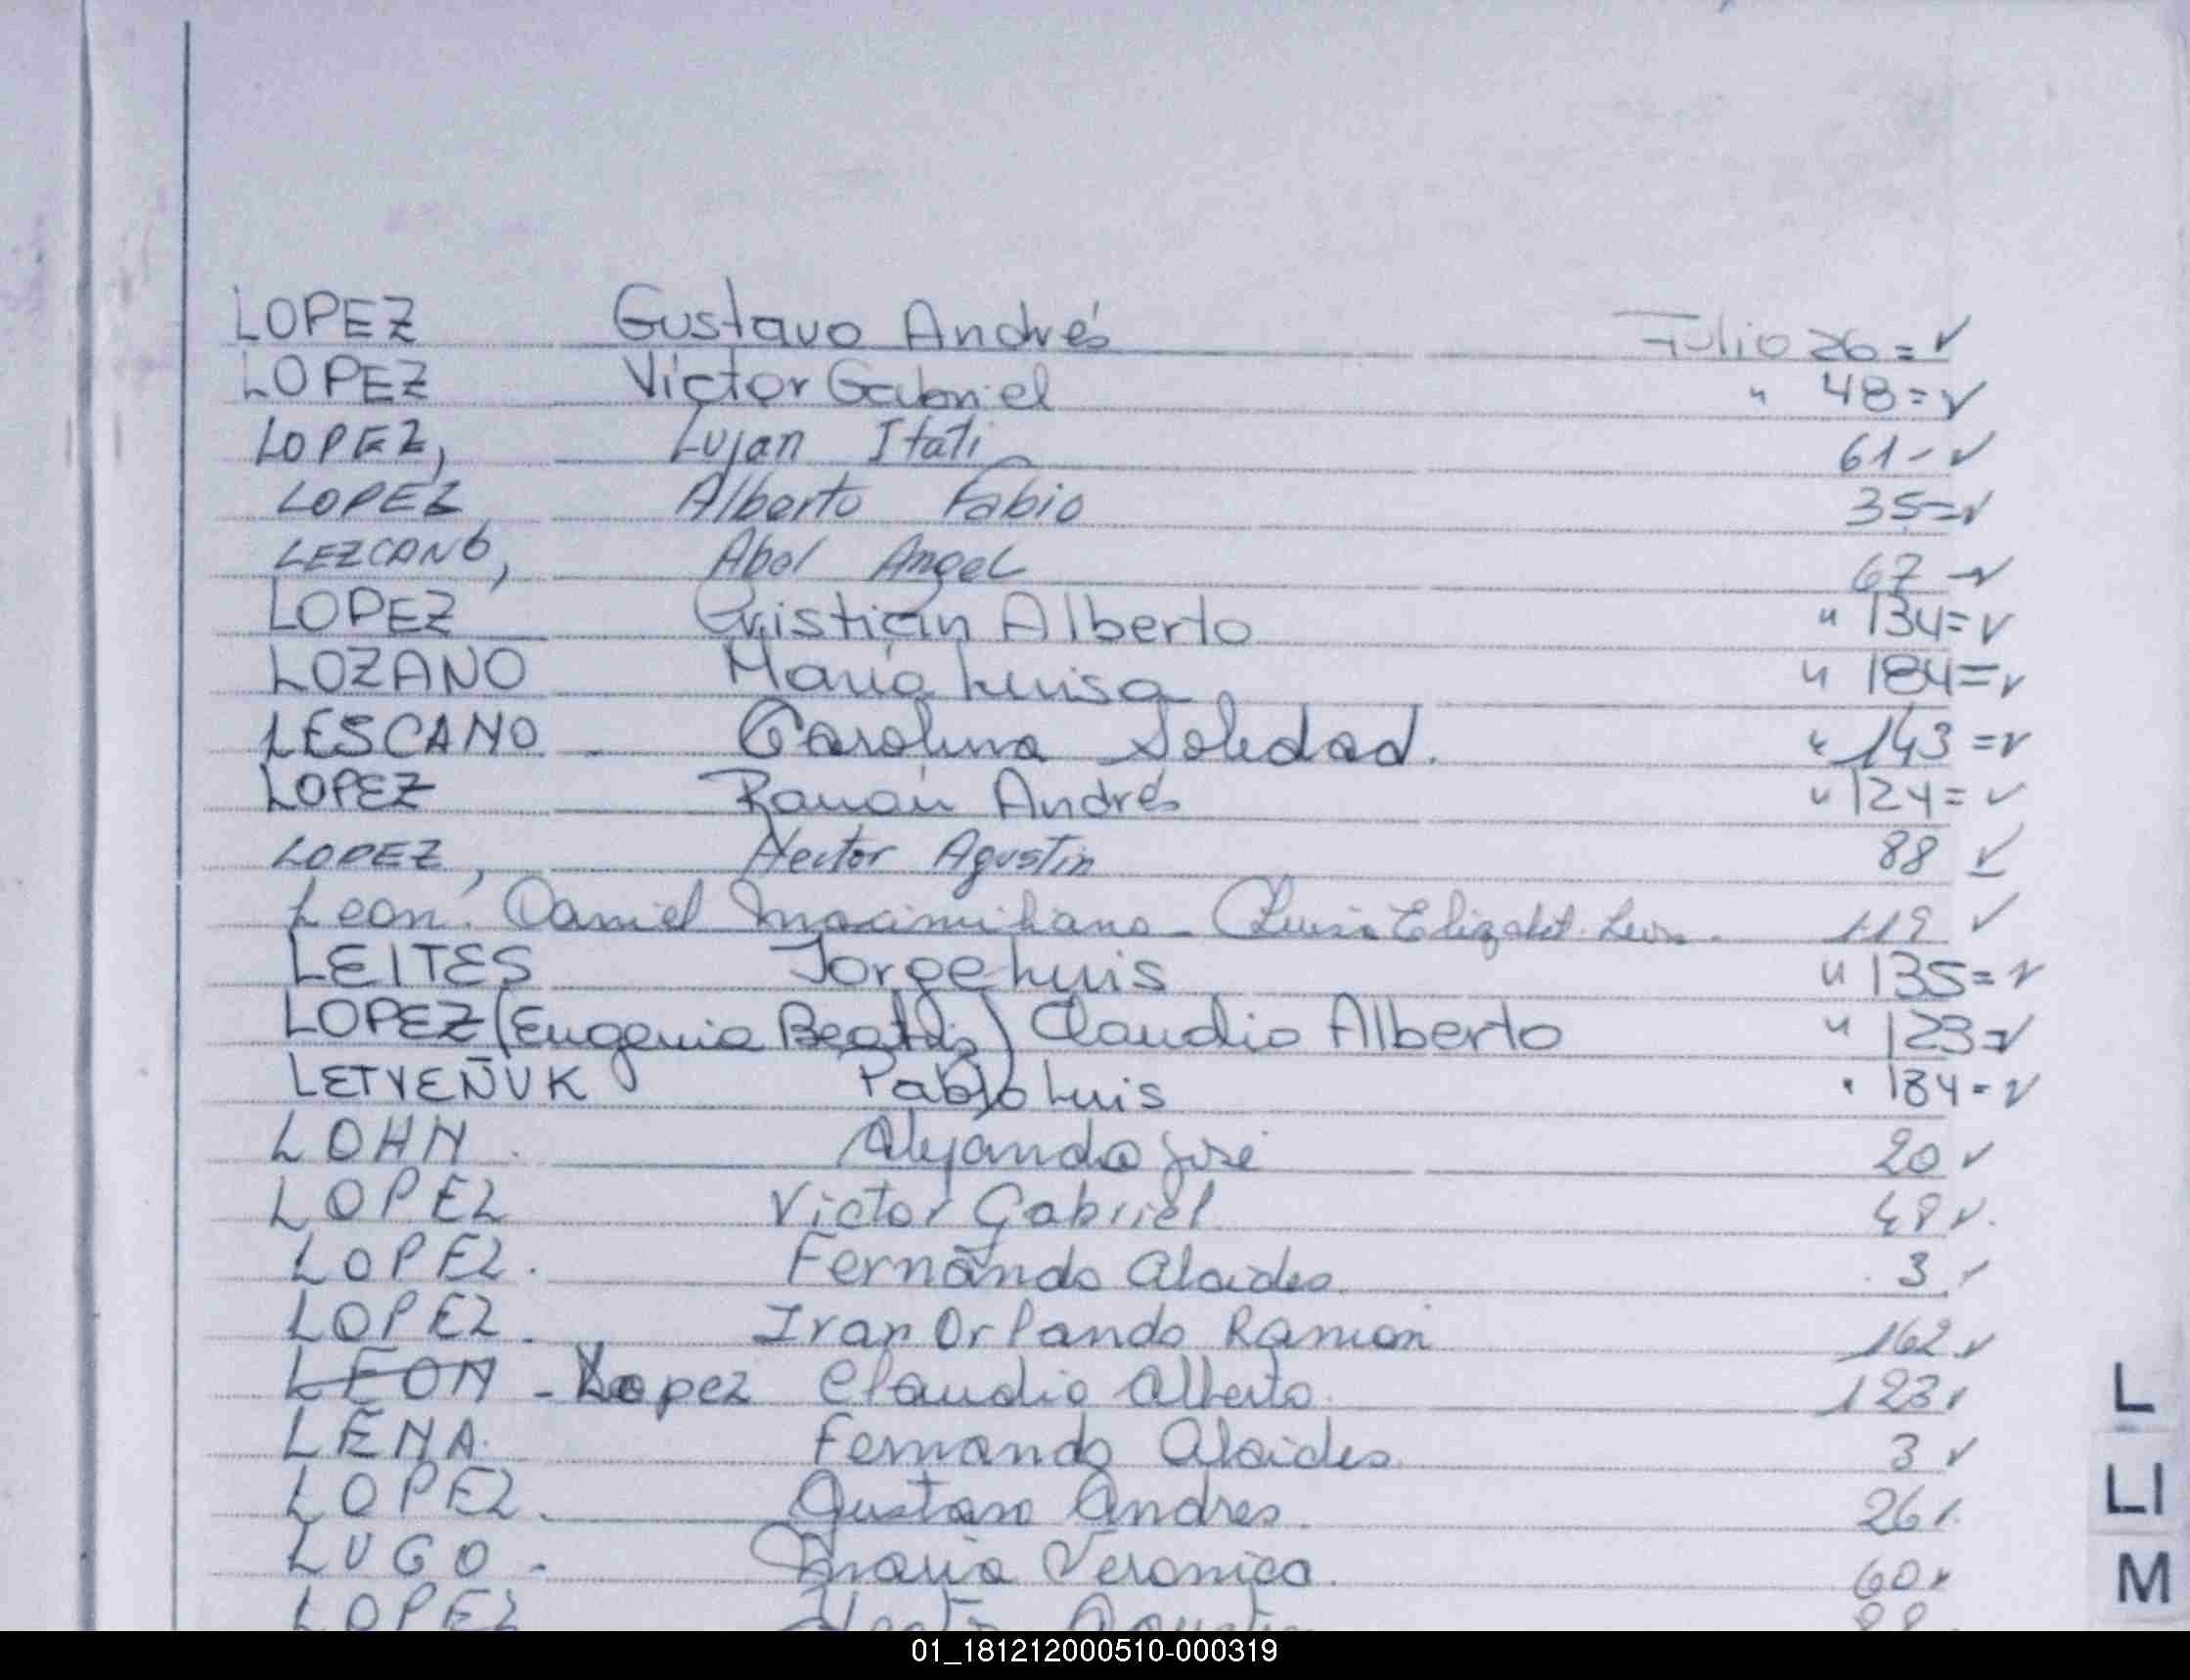 LOPEZ Gustavo Andrés Folio 26 = ✓
LOPEZ Víctor Gabriel " 48 = ✓
LOPEZ, Lujan Itati 61 - ✓
LOPEZ Alberto Fabio 35 = ✓
LEZCANO, Abel Angel 67 - ✓
LOPEZ Cristián Alberto " 134 = ✓
LOZANO María Luisa " 184 = ✓
LESCANO Carolina Soledad. " 143 = ✓
LOPEZ Ramón Andrés " 124 = ✓
LOPEZ, Hector Agustin 88 ✓
Leon. Daniel Maximiliano - Luisa Elizabet 119 ✓
LEITES Jorge Luis " 135 = ✓
LOPEZ (Eugenia Beatriz) Claudio Alberto " 123 = ✓
LETVEÑUK Pablo Luis " 184 = ✓
LOHN. Alejandro José 20 ✓
LOPEZ Victor Gabriel 48 ✓.
LOPEZ. Fernando Alcides. 3 ✓
LOPEZ. Ivan Orlando Ramon 162 ✓
LEON - Lopez Claudio Alberto. 123 ✓
LENA. Fernando Alcides. 3 ✓
LOPEZ. Gustavo Andres. 26 ✓
LUGO - Maria Veronica. 60 ✓
LOPEZ Hector Agustin 88
L
LI
M
01_181212000510-000319